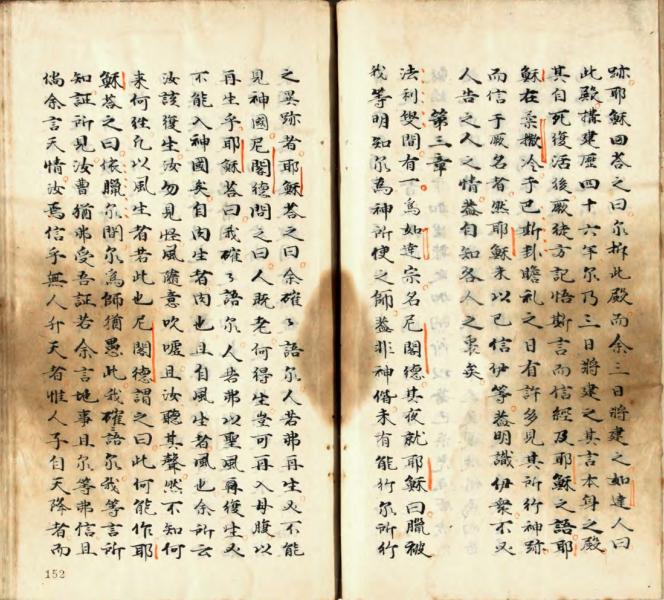 跡耶穌回荅之曰尔拆此殿而余三日將建之如達人曰
此殿搆建歷四十六年尔乃三日將建之其言本身之殿
其自死復活後厥徒方記悟斯言而信經及耶穌之語耶
穌在柔撒冷于巴斯卦瞻礼之日有許多見其所行神跡
而信于厥名者然耶穌未以己信伊等葢明識伊衆不必
人告之人之情葢自知各人之裏矣
第三章
法利㘔間有一為如達宗名尼閣德其夜就耶穌曰臘被
我等明知尔為神所使之師葢非神偕未有能行尔所行
之異跡者耶穌荅之曰余確々語尔人若弗再生必不能
見神國尼閣德問之曰人既老何得生豈可再入母腹以
再生乎耶穌荅曰我確々語尔人若弗以聖風再復生必
不能入神國矣自肉生者肉也且自風生者風也余所云
汝該復生汝勿見怪風隨意吹噓且汝聽其聲然不知何
来何徃凡以風生者若此也尼閣德謂之曰此何能作耶
穌荅之曰依臘尔間尔為師猶愚此我確語尔我等言所
知証所見汝曹猶弗受吾証若余言地事且尔等弗信且
倘余言天情汝焉信乎無人升天者惟人子自天降者而
152